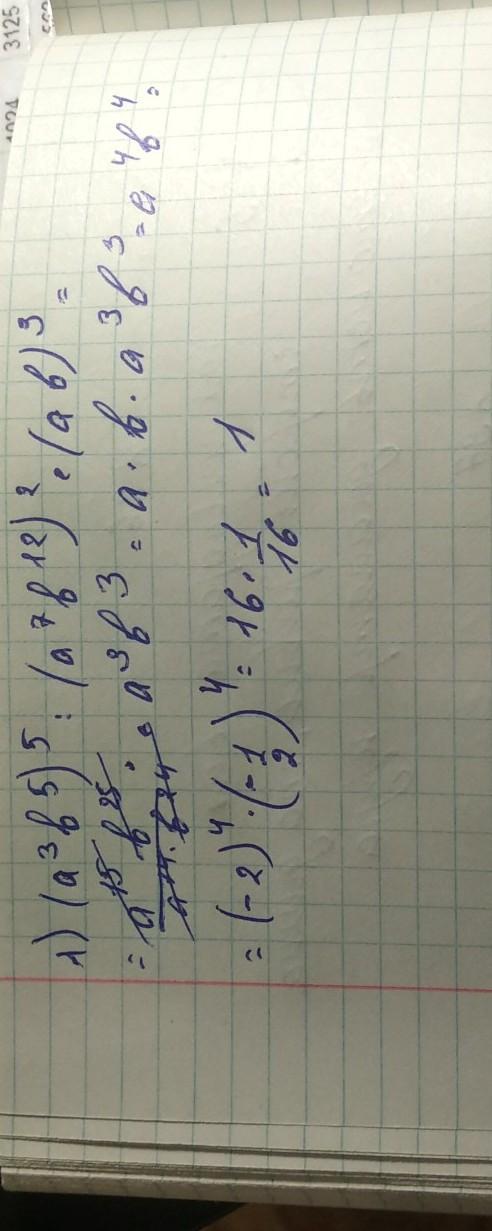 1) (a³b⁵)⁵ : (a⁷b¹²)² · (ab)³ =
= a¹⁵ b²⁵ / a¹⁴ · b²⁴ · a³b³ = a · b · a³b³ = a⁴b⁴ =
= (-2)⁴ · (-1/2)⁴ = 16 · 1/16 = 1
3125
1024